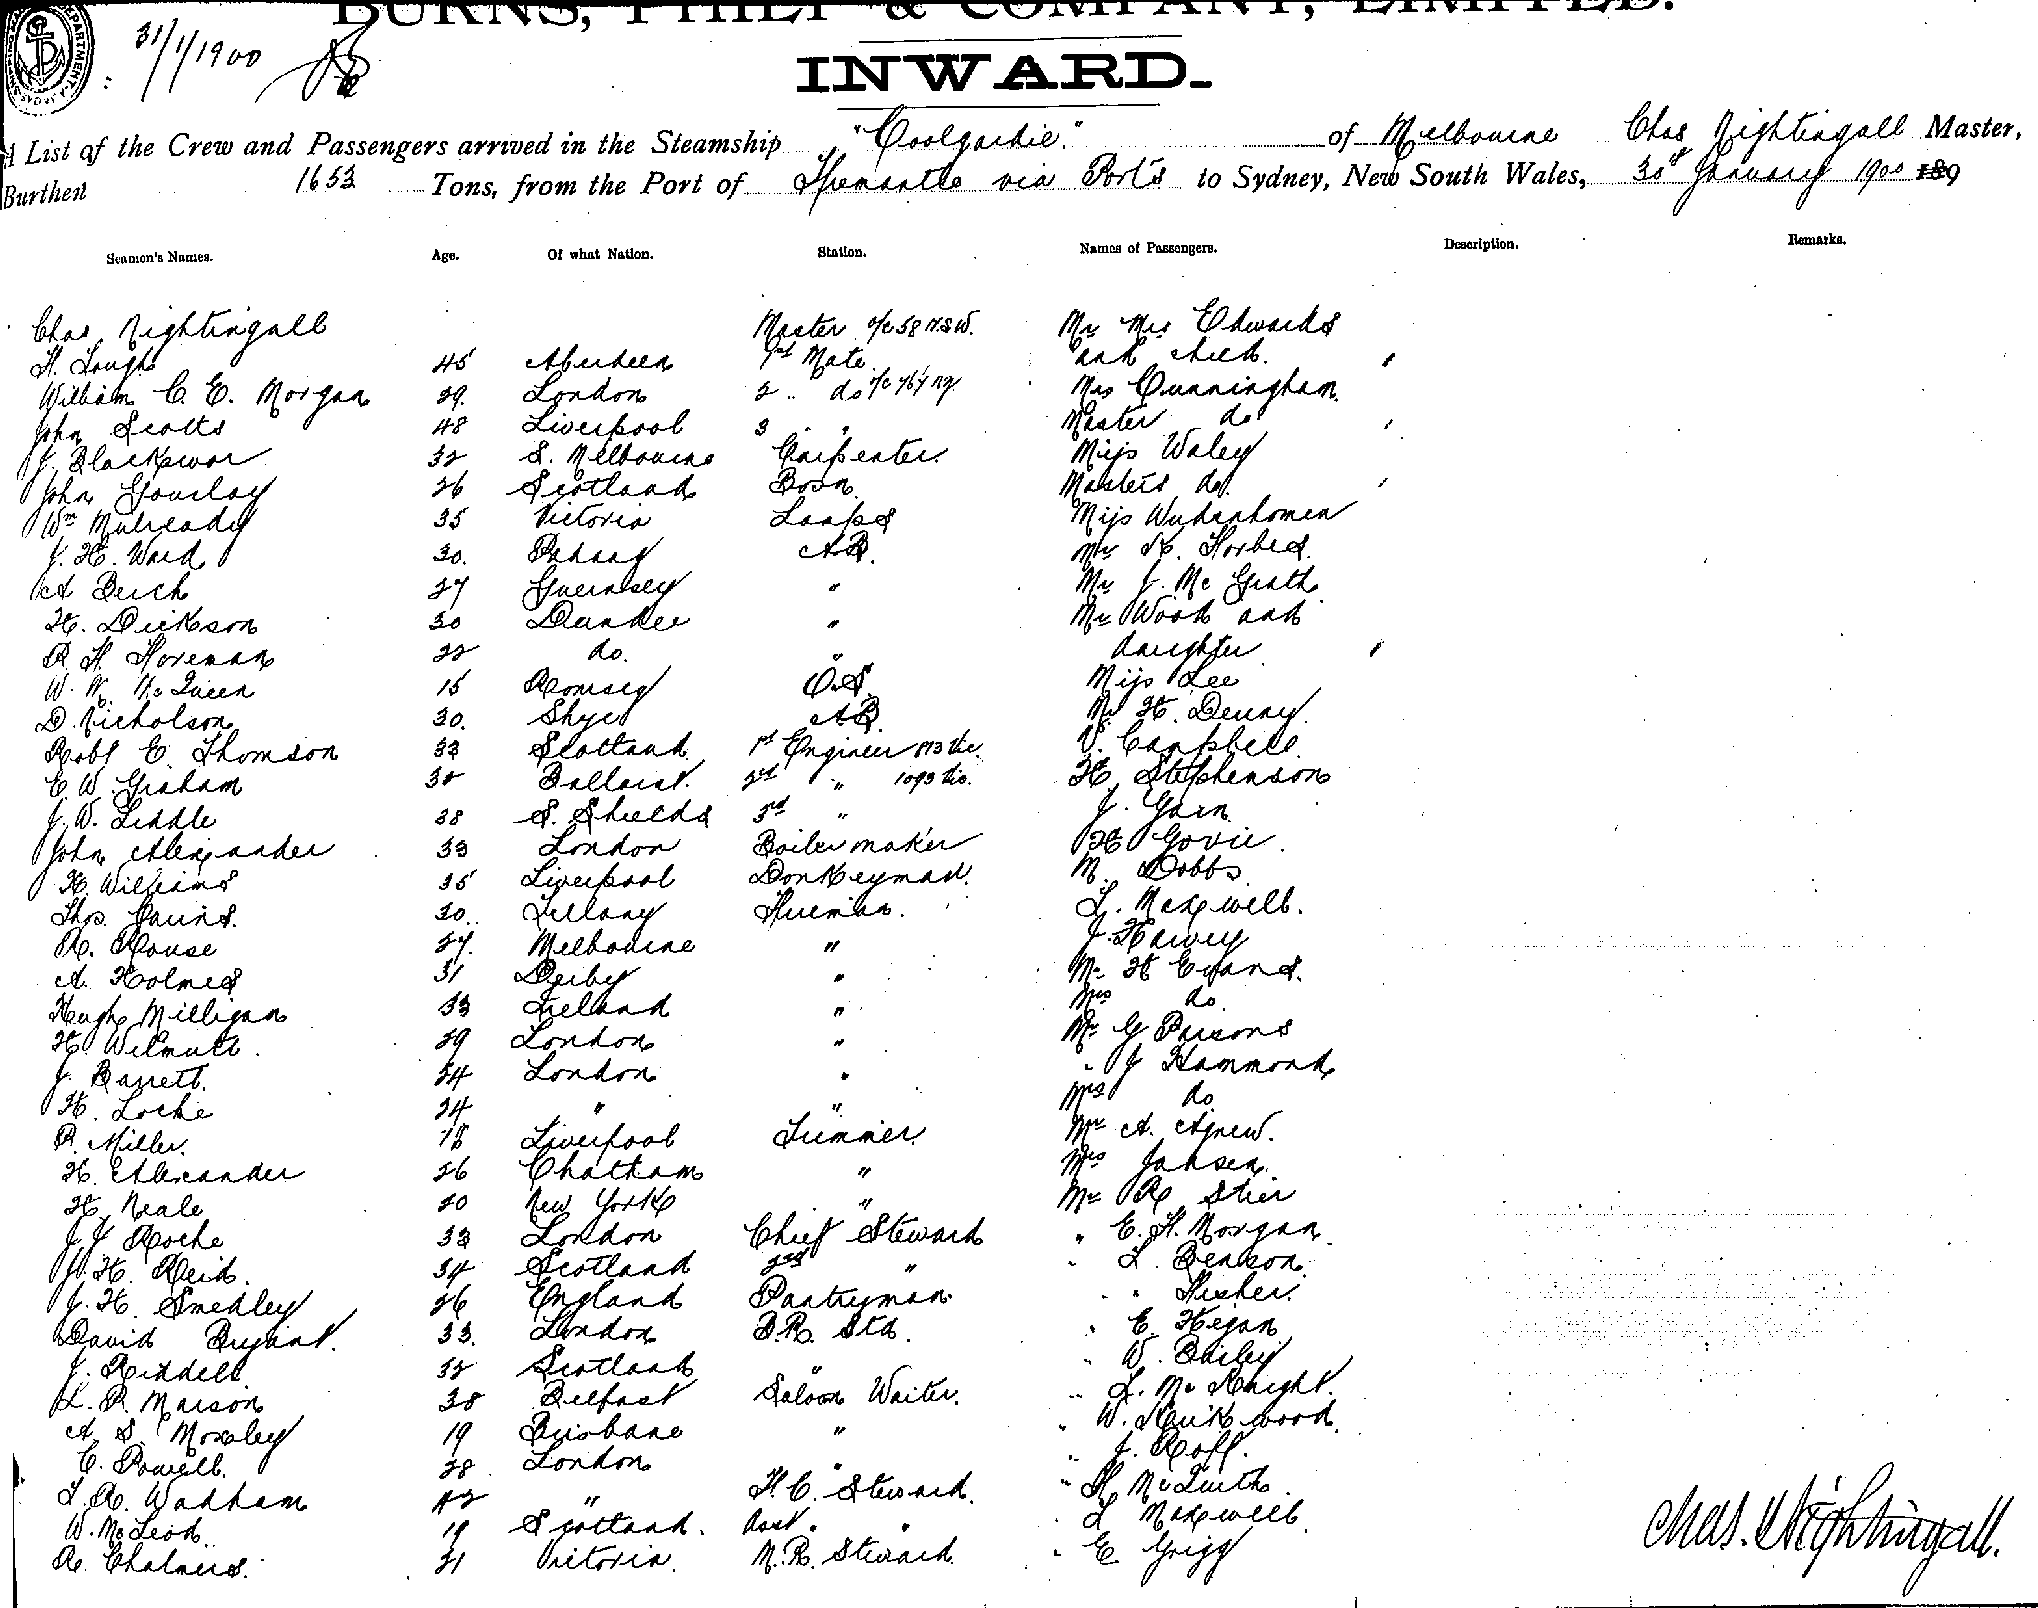 BURNS, PHILP & COMPANY, LIMITED.
31/1/1900
INWARD.
A List of the Crew and Passengers arrived in the Steamship "Coolgardie." of Melbourne Chas Nightingall Master,
Burthen 1653 Tons, from the Port of Fremantle via Ports to Sydney, New South Wales, 30th January 1900 189
Seamen's Names. Age. Of what Nation. Station. Names of Passengers. Description. Remarks.
Chas Nightingall Master c/c 58 NSW. Mr Mrs Edwards
H. Lough 45 Aberdeen 1st Mate and child.
William C. E. Morgan 29. London 2 .. do Mrs Cunningham.
John Scotts 48 Liverpool 3 " Master do
J. Blackswor 32 S. Melbourne Carpenter. Miss Waley
John Gourlay 26 Scotland Bosn. Masters do.
Wm Mulready 35 Victoria Lamps Miss
J. H. Ward 30. Penang A.B. Mr H. Forbes.
A Birch 27 Guernsey " Mr J. McGrath
H. Dickson 30 Dundee " Mr Wood and
R. H. Foreman 22 do. " daughter
W. W. McQueen 15 Romsey O.S. Miss Lee
D. Nicholson 30. Skye A.B. Mr H. Denny.
Robt C. Thomson 33 Scotland 1st Engineer 873 Vic. V. Campbell
E. W. Graham 30 Ballarat. 2nd " 1093 Vic. H. Stephenson
J. W. Liddle 38 S. Shields 3rd " J. Gain
John Alexander 33 London Boilermaker H Govie.
H. Williams 35 Liverpool Donkeyman. M. Dobbs
Thos. Cairns. 30. Fireman. L. Maxwell.
R. Rouse 27. Melbourne " J. Harvey
A. Holmes 31 Derby " Mr H Evans.
Hugh Milligan 33 Ireland " Mrs do
H. Wilmott. 29 London " Mr G Parsons
J. Barrett. 24 London " " J Hammond
H. Locke 24 " " Mrs do
P. Miller. 18 Liverpool Trimmer. Mr A. Agnew.
H. Alexander 26 Chatham " Mrs Jansen.
H. Neale 20 New York " Mr R Stier
J J Roche 33 London Chief Steward " E. H. Morgan
J. H. Reid. 34 Scotland 2nd " " L. Benson.
J. H. Smedley 26 England Pantryman " " Fisher.
David Bryant. 33. London B.R. Std. " E. Hegan
J. Riddell 32 Scotland " " W. Bailey
L. R. Marson 38 Belfast Saloon Waiter. " L. McKnight.
A. S. Moxley 19 Brisbane " " W. Kirkwood.
C. Powell. 28 London " " J. Roff.
J. R. Wadham 42 " F. C. Steward. "
W. McLeod. 19 Scotland. Asst. " " L Maxwell
R. Chalmers. 21 Victoria. M.R. Steward. " E Grigg
Chas. Nightingall.